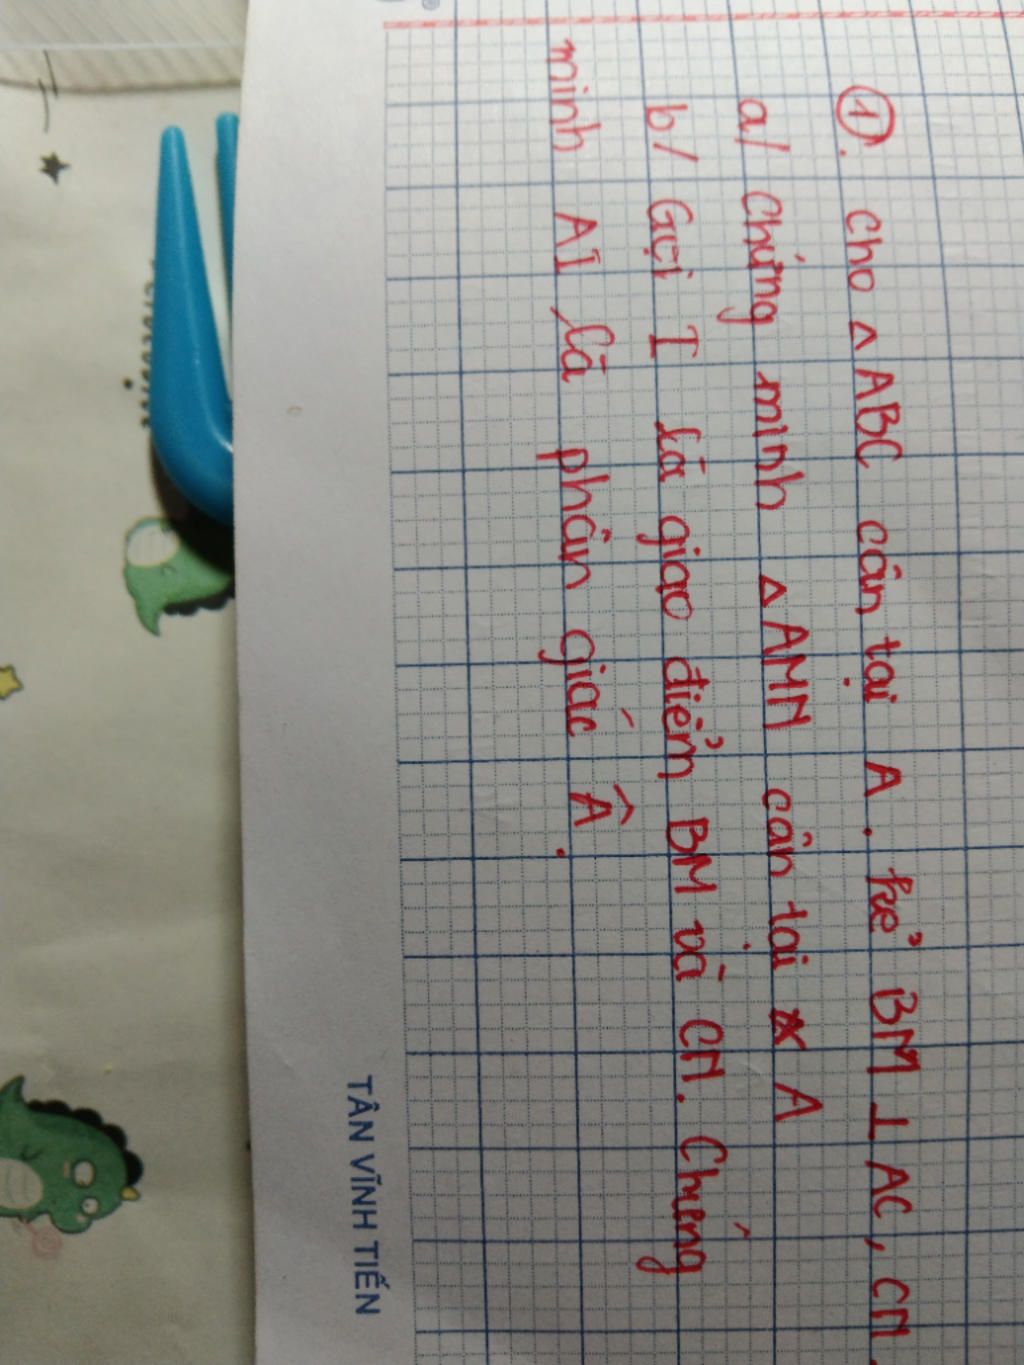 ①. Cho △ABC cân tại A. Kẻ BM ⊥ AC, CN
a/ Chứng minh △AMN cân tại A
b/ Gọi I là giao điểm BM và CN. Chứng
minh AI là phân giác Â.
TÂN VĨNH TIẾN